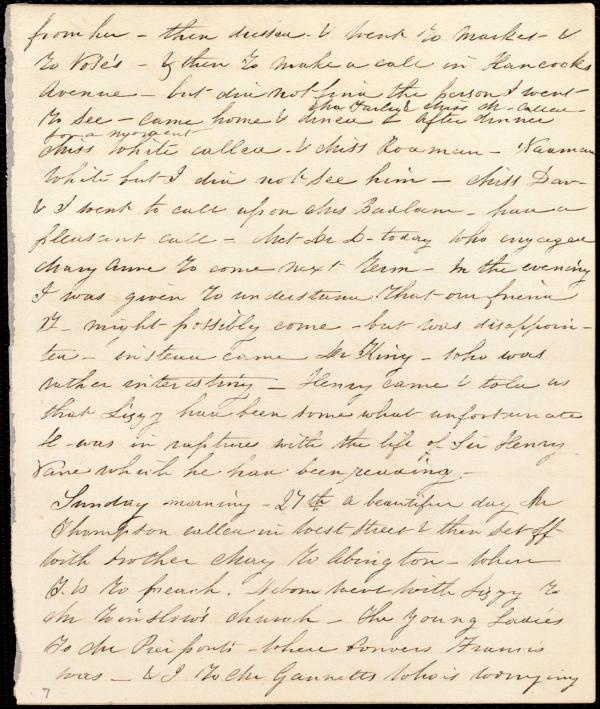 from her - then dressed & went to Market - &
to Vose's - & then to make a call in Hancock
Avenue - but did not find the person I went
to see - came home & dined & Miss M - called After dinner
for a moment
Miss White called - & Miss Rodman - Naaman
White but I did not see him - Miss Dav-
& I went to call upon Mrs Badlam - had a
pleasant call - Met Dr D - today who engaged
Mary Anne to come next term - In the evening
I was given to understand that our friend
might possibly come - but was disappoin-
ted - instead came Mr King - who was
rather interesting - Henry came & told us
that Lizzy had been somewhat unfortunate
H - was in raptures with the life of Sir Henry
Vane which he had been reading. -
Sunday morning - 27th a beautiful day Mr
Thompson called in West Street & then set off
with brother May to Abington - where
T. is to preach. went with Lizzy to
Mr Winslow's church - The Young Ladies
To Mr Pierponts - where Convers Francis
was - & I to Mr Gannetts who is worrying
7